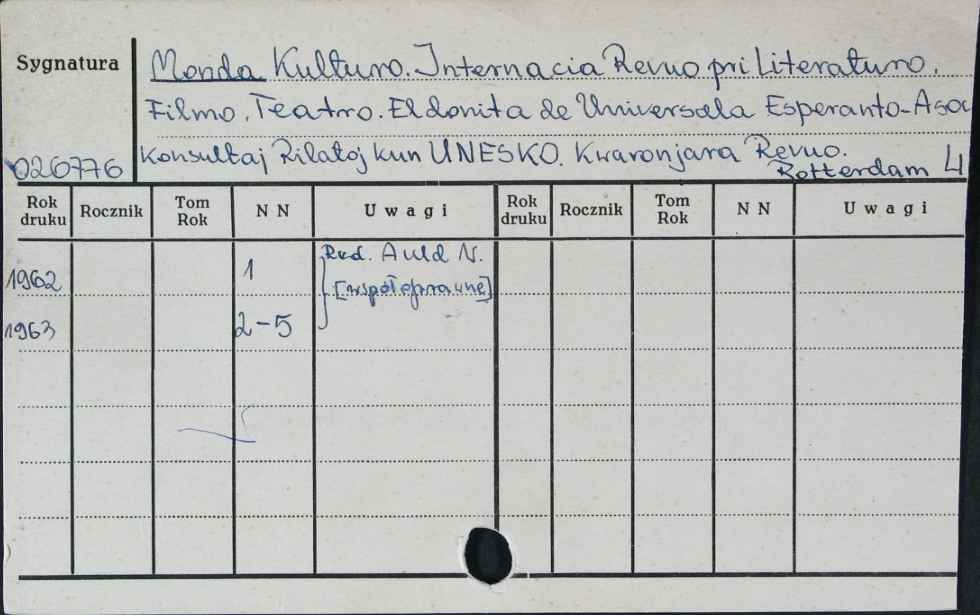 Sygnatura
Monda Kulturo. Internacia Revuo pri Literaturo.
Filmo. Teatro. Eldonita de Universala Esperanto-Asoc
026776 Konsultaj Rilatoj kun UNESKO. Kwaronjara Revuo.
Rotterdam
Rok druku Rocznik Tom Rok NN Uwagi Rok druku Rocznik Tom Rok NN Uwagi
1962 1 Red. Auld N.
[współoprawne]
1963 2-5